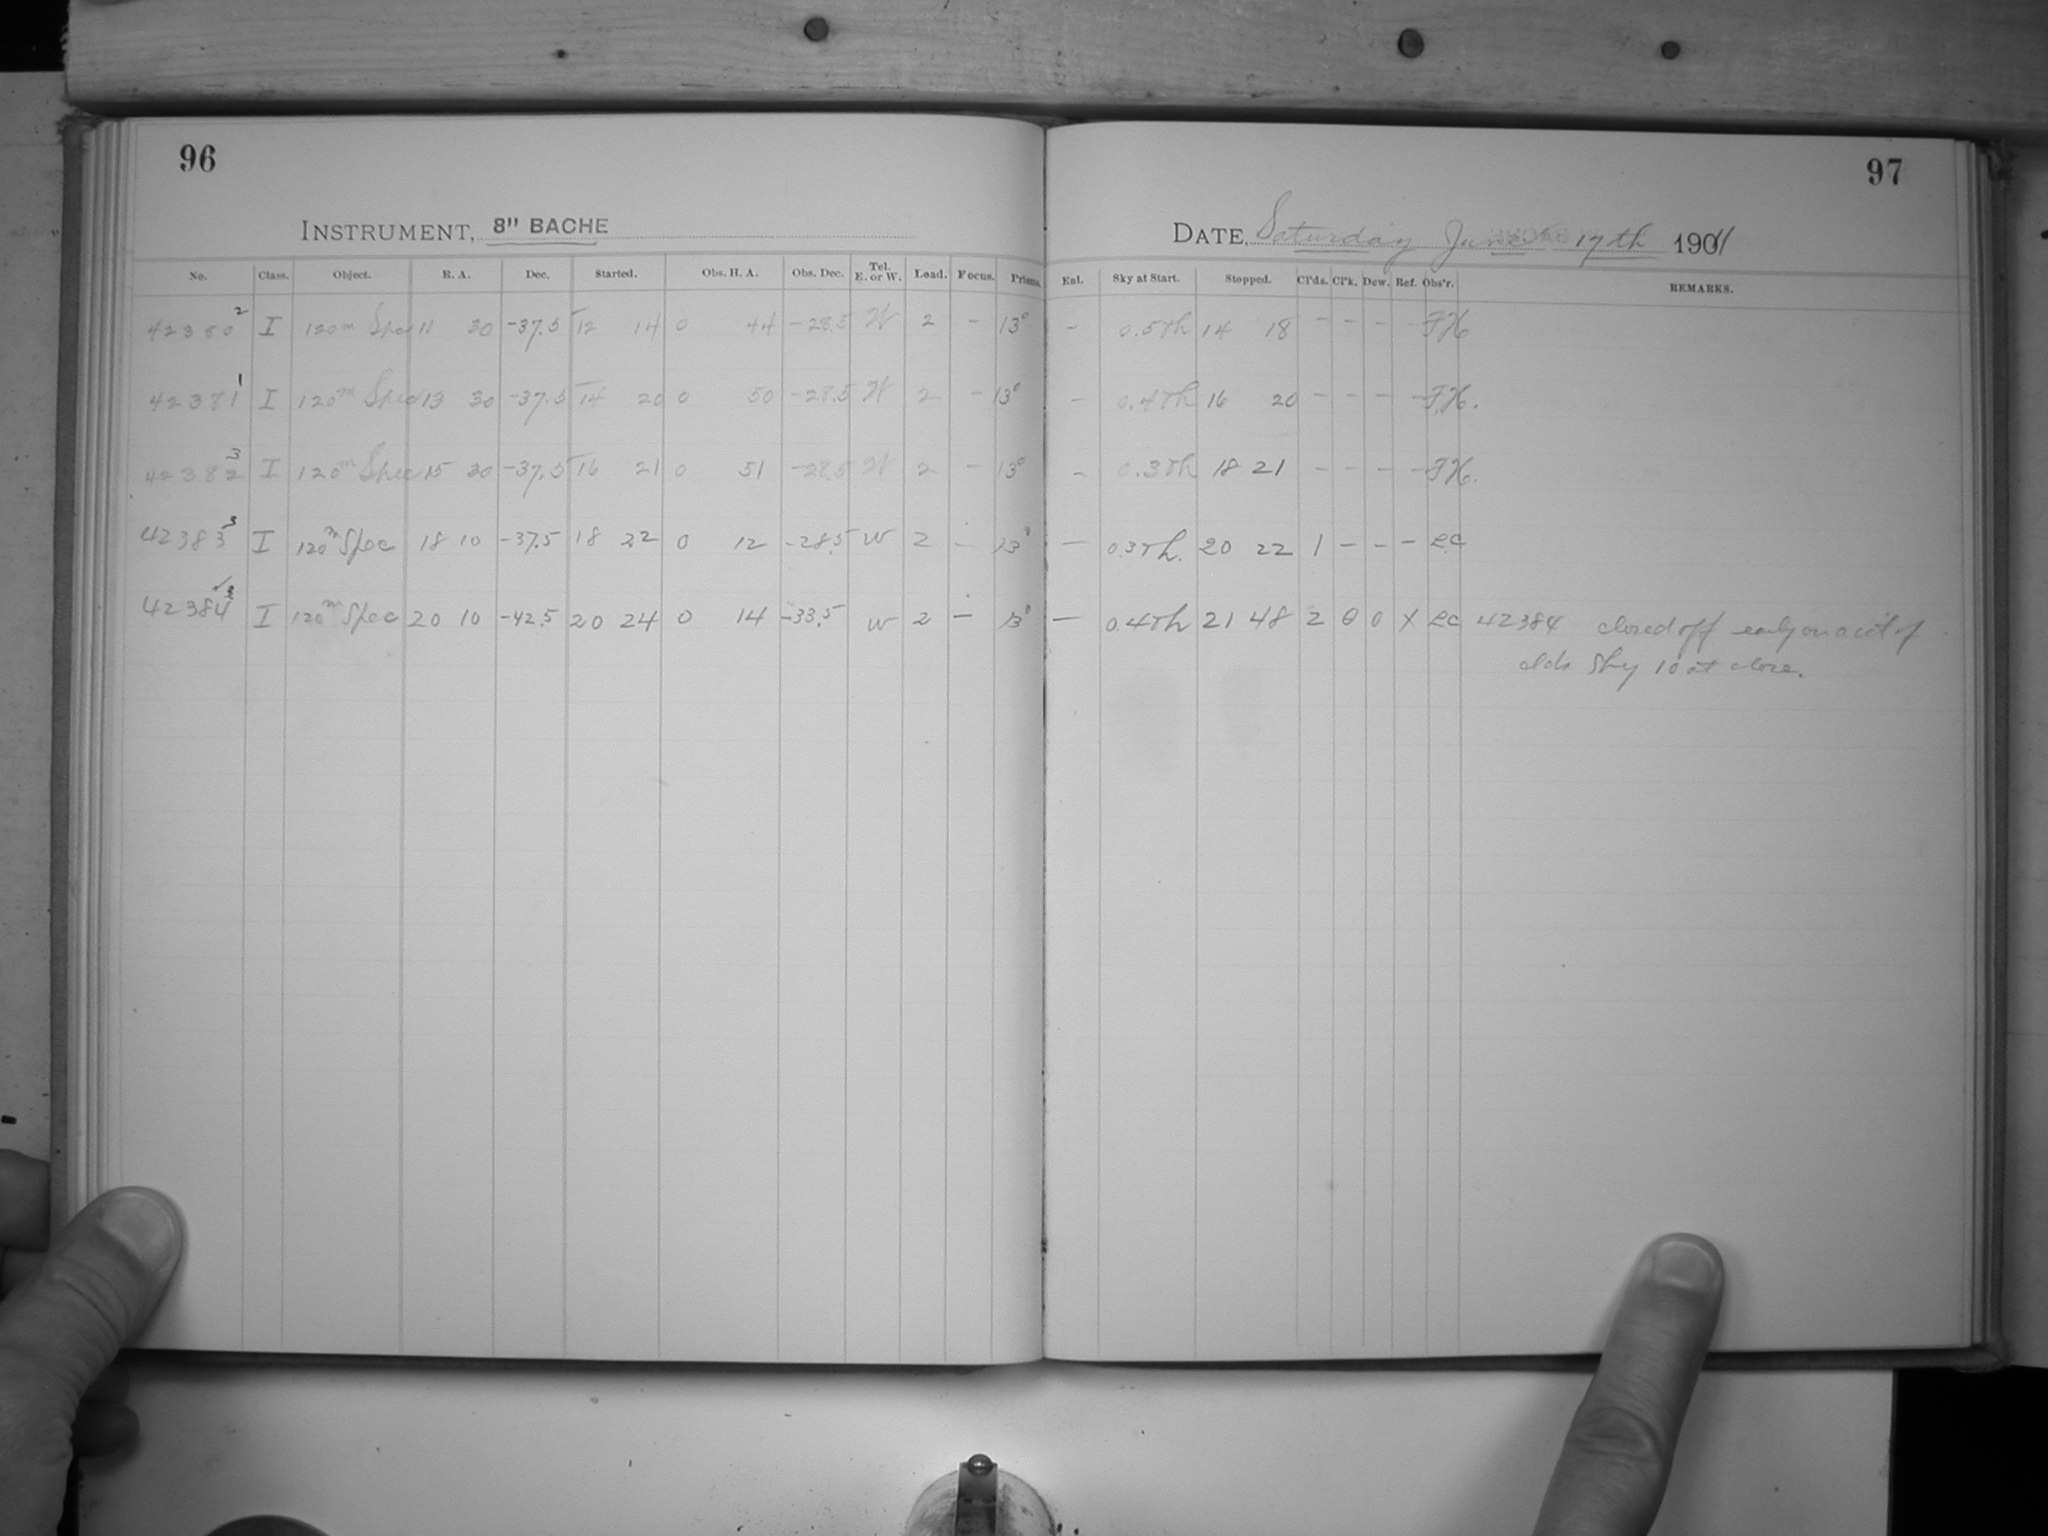 96
INSTRUMENT, 8" BACHE
No. Class. Object. R. A. Dec. Started. Obs. H. A. Obs. Dec. Tel. E. or W. Lead. Focus. Prisms.
42380 2 I 120m Spec 11 30 -37.5 12 14 0 44 -28.5 W 2 - 13°
42381 1 I 120m Spec 13 30 -37.5 14 20 0 50 -28.5 W 2 - 13°
42382 3 I 120m Spec 15 30 -37.5 16 21 0 51 -28.5 W 2 - 13°
42383 3 I 120m Spec 18 10 -37.5 18 22 0 12 -28.5 W 2 - 13°
42384 I 120m Spec 20 10 -42.5 20 24 0 14 -33.5 W 2 - 13°
97
DATE, Saturday June 17th 1911
Ent. Sky at Start. Stopped. Cl'ds. Cl'k. Dew. Ref. Obs'r. REMARKS.
- 0.5 th 14 18 - - - - FH
- 0.4 th 16 20 - - - - FH.
- 0.3 th 18 21 - - - - FH.
- 0.3 th. 20 22 1 - - - LC
- 0.4 th 21 48 2 0 0 X LC 42384 closed off early on acct of
clds Sky 10 at close.